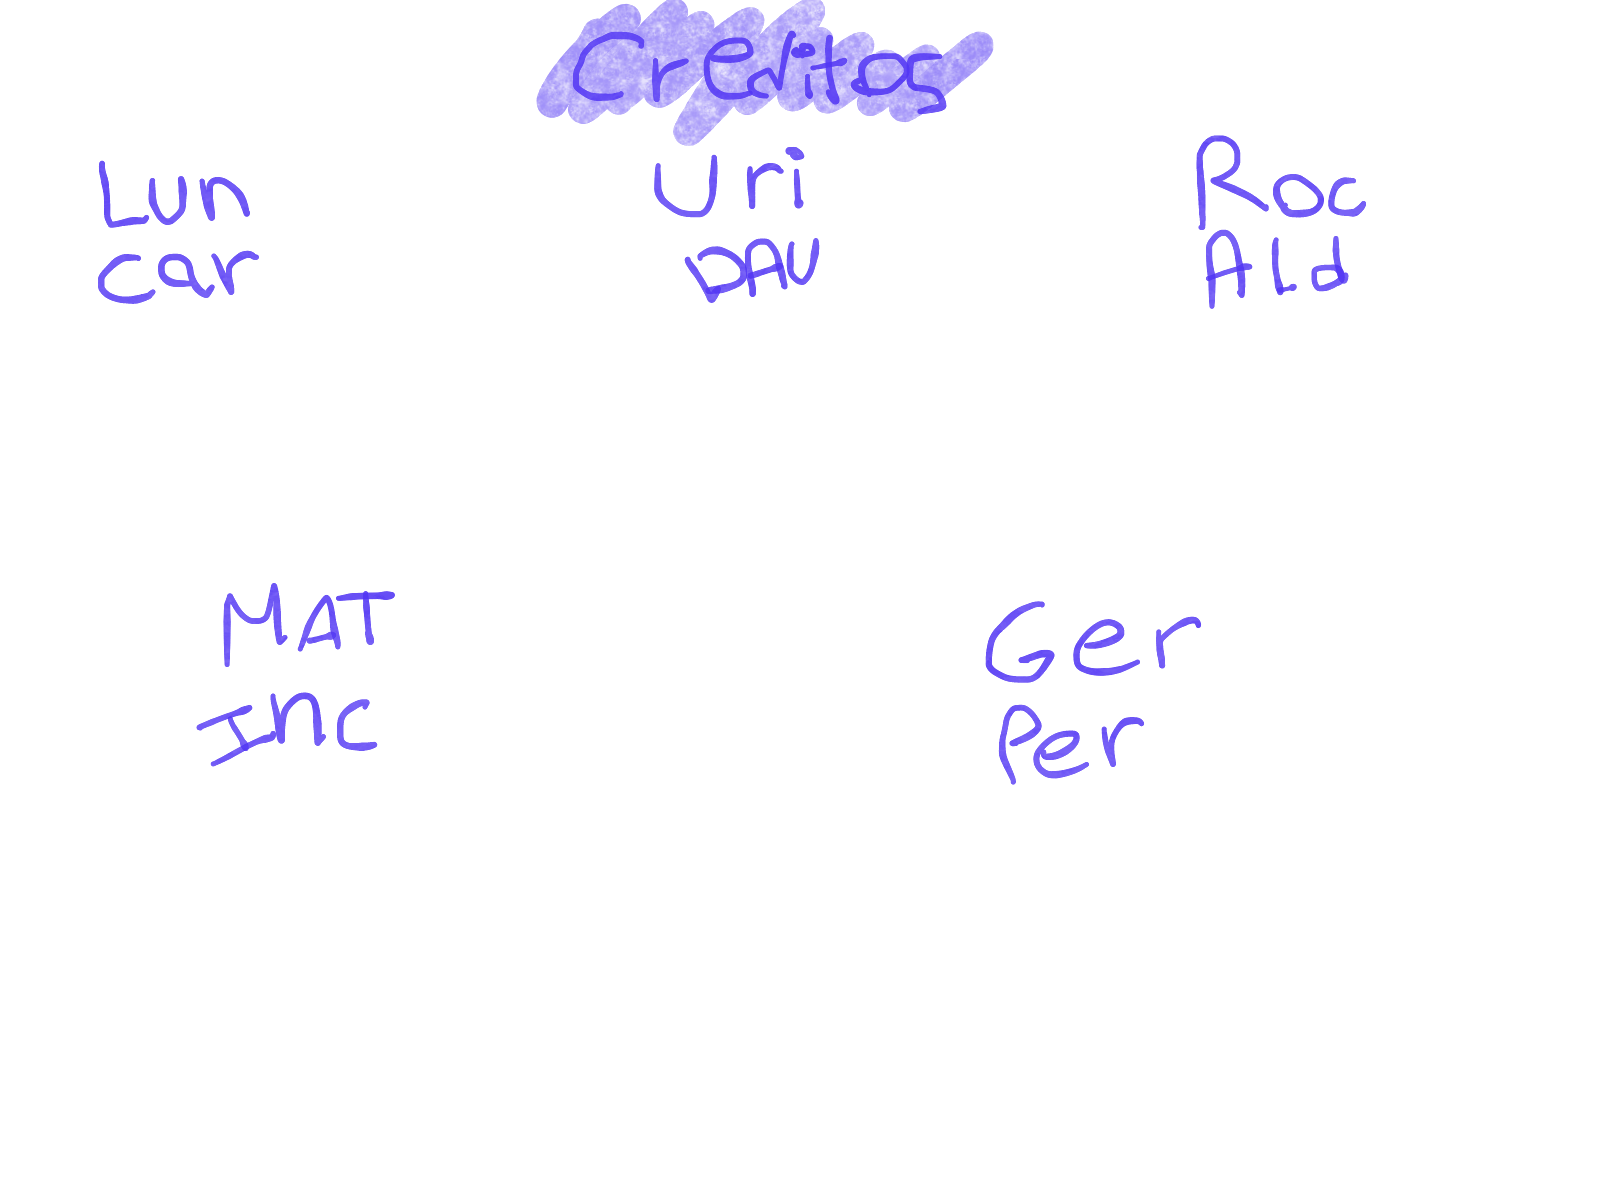 Creditos
Lun
car
Uri
DAV
Roc
Ald
MAT
Inc
Ger
Per